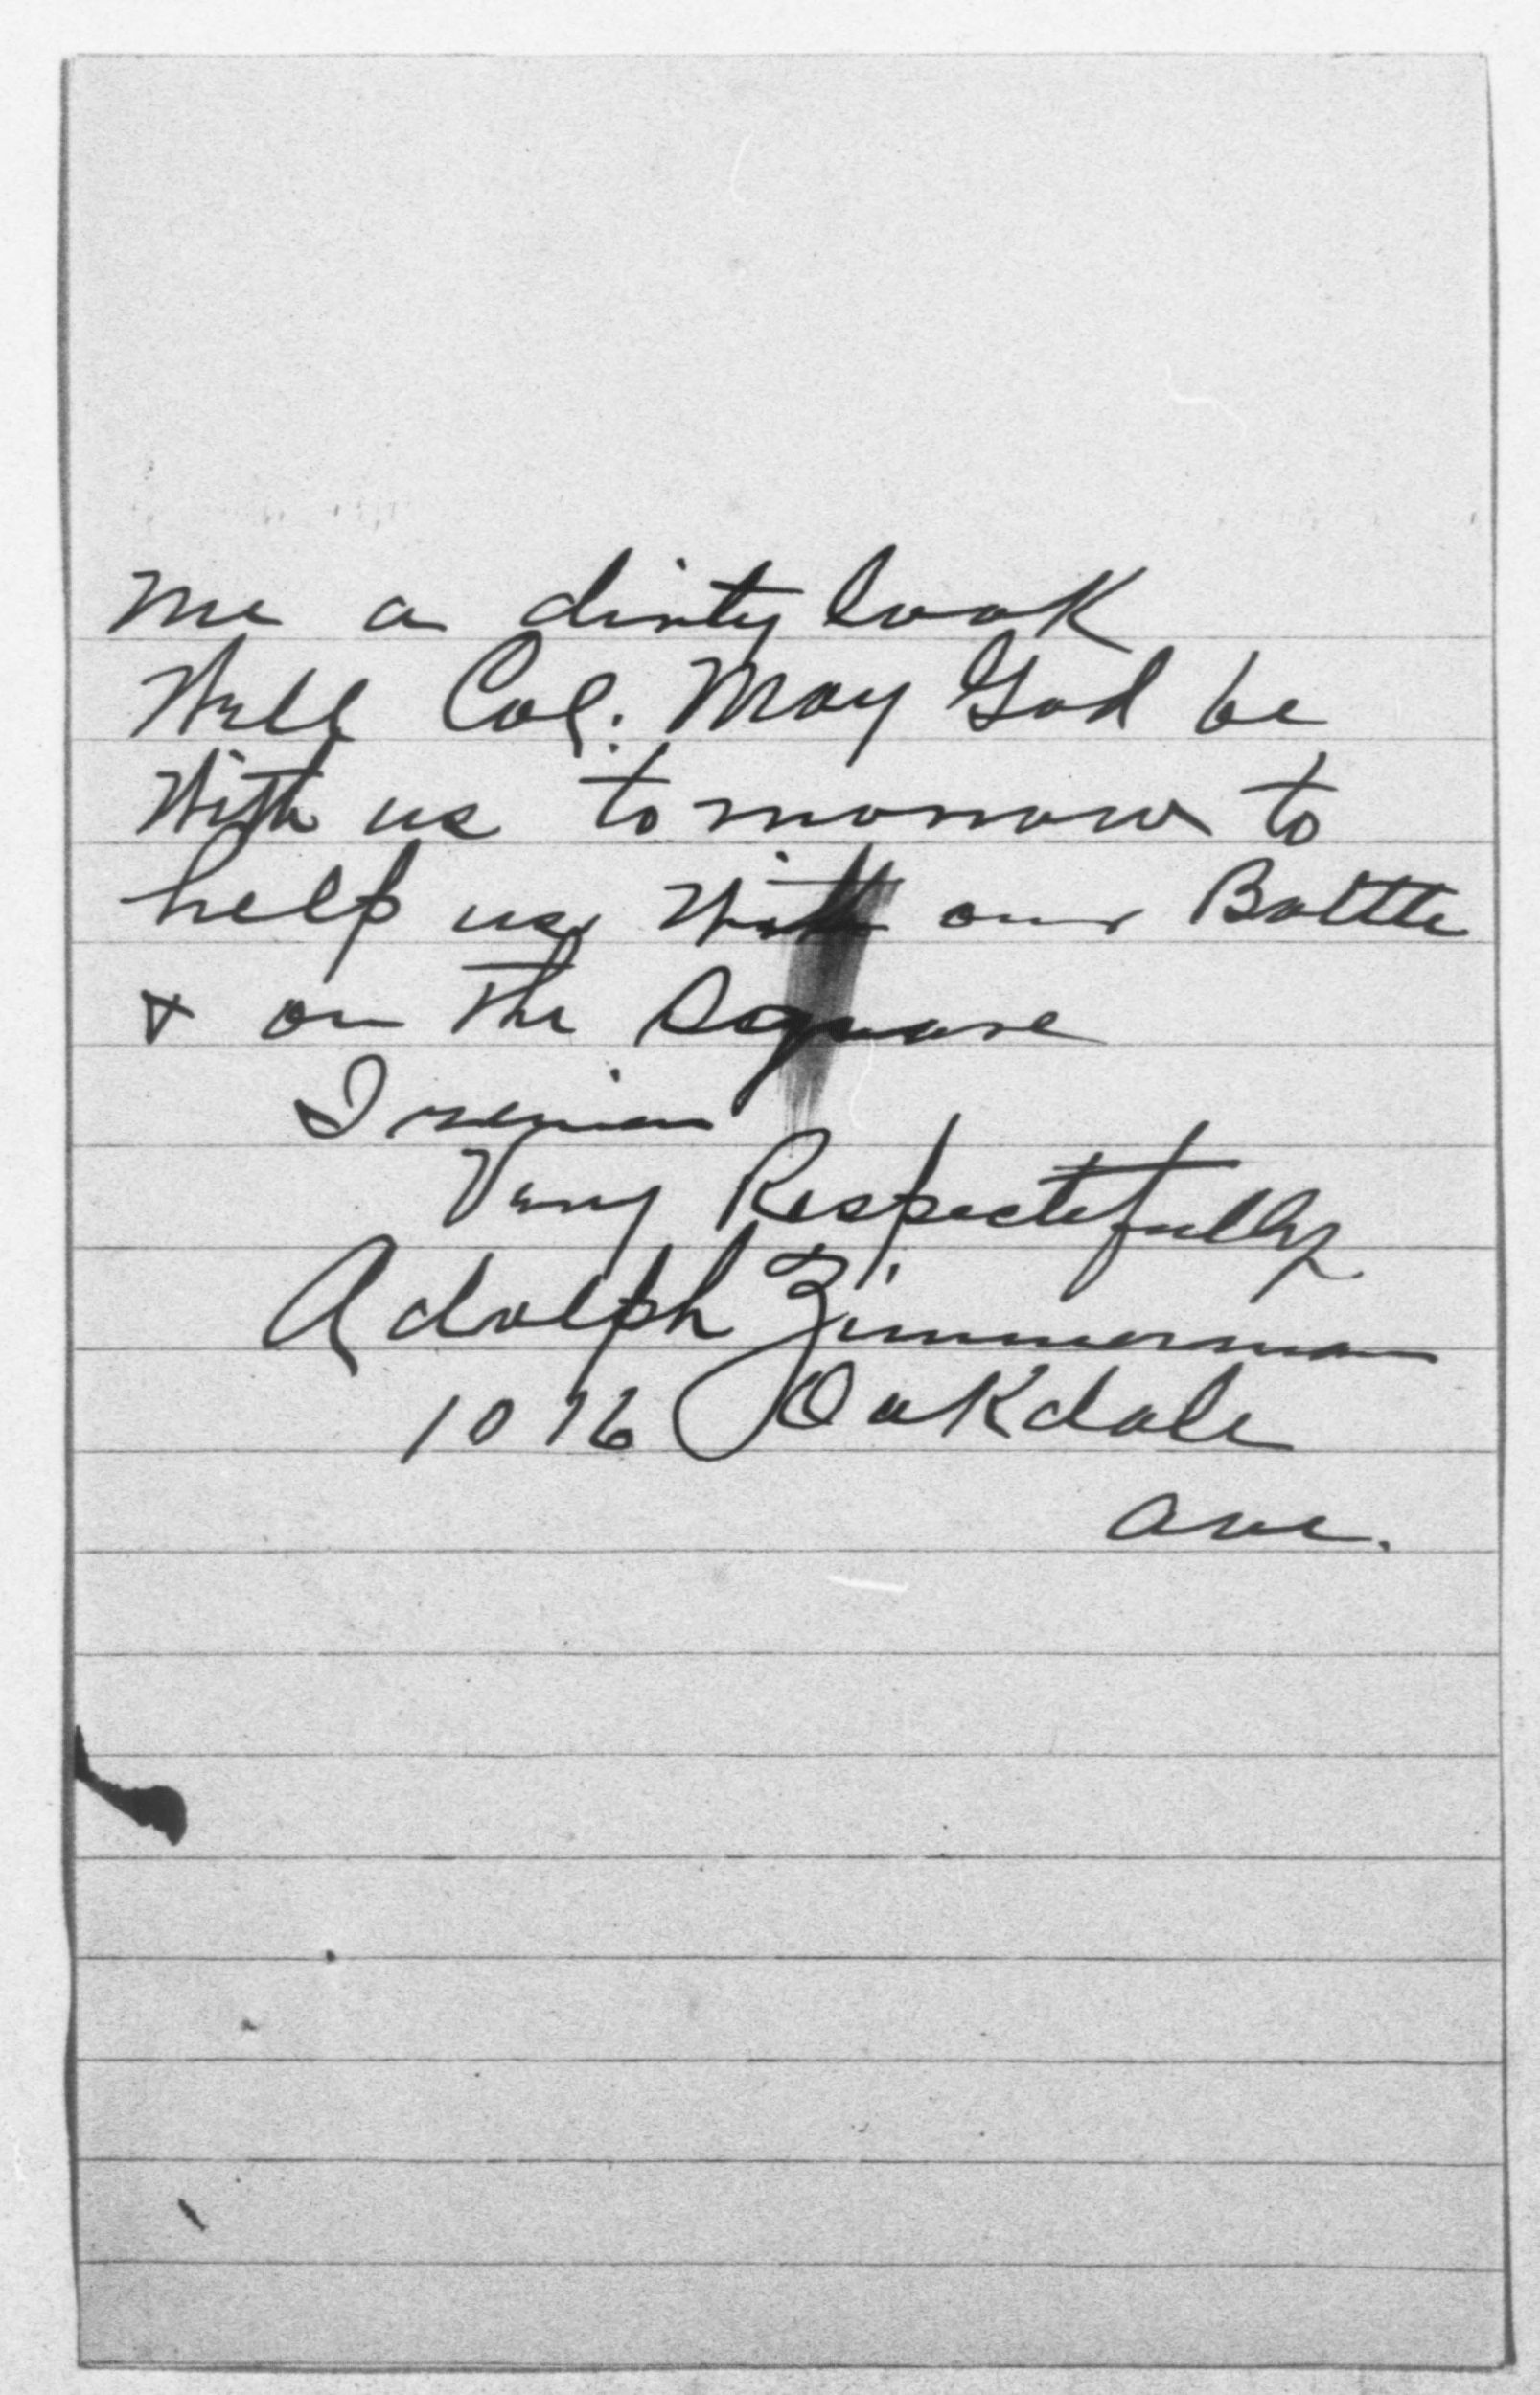 me a dirty look
Well Col. May God be
With us tomorrow to
help us with our Battle
& on the Square
I remain
Very Respectfully
Adolph Zimmerman
1016 Oakdale
Ave.